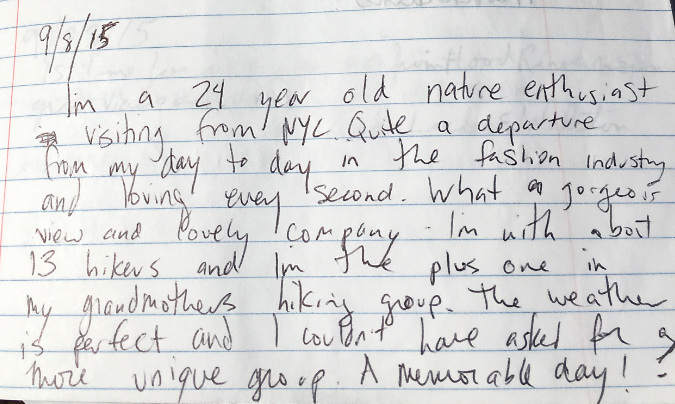 9/8/15
Im a 24 year old nature enthusiast
visiting from NYC. Quite a departure
from my day to day in the fashion industry
and loving every second. What a gorgeois
view and lovely company. Im with aboit
13 hikers and Im the plus one in
my grandmothers hiking group. The weather
is perfect and I couldnt have asked for a
more unique group. A memorable day!